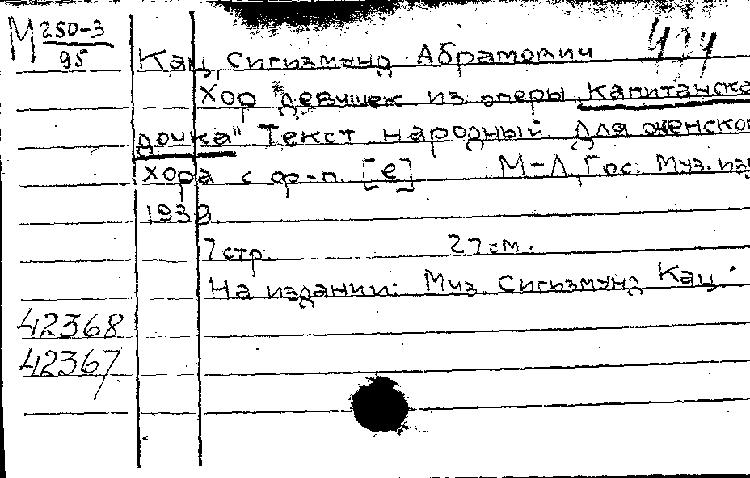 М 250-3
95
Кац, Сигизмунд Абрамович
Хор девушек из оперы „Капитанска
дочка" Текст народный. Для женско
хора с ф-п. [e] М-Л, Гос. Муз. изд
1939.
7 стр. 27 см.
На издании: Муз. Сигизмунд Кац.
42368
42367